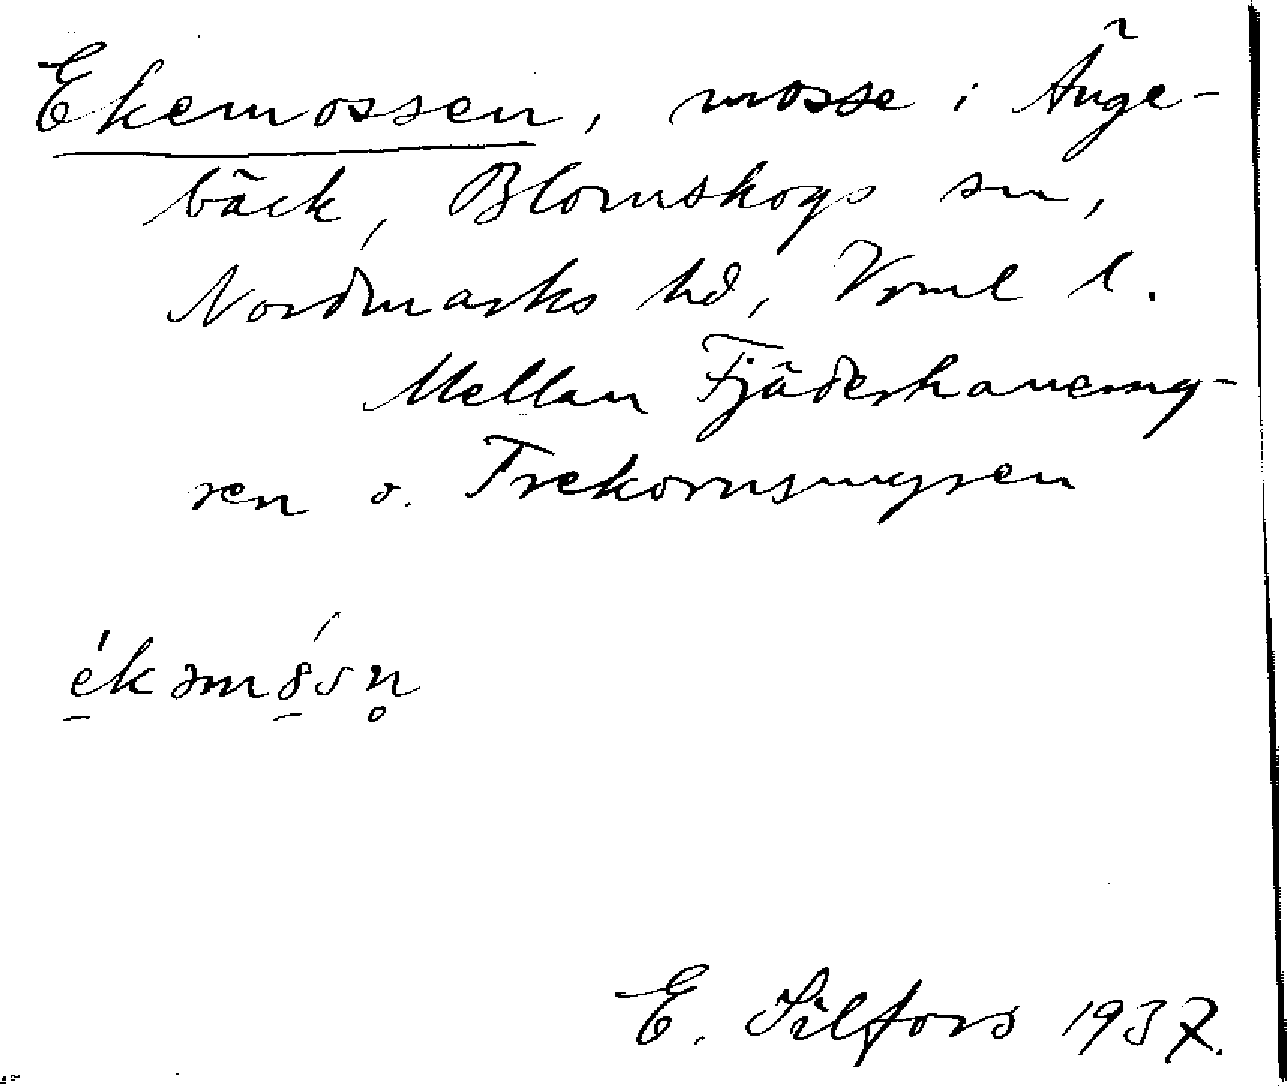 Ekemossen, mosse i Änge-
bäck, Blomskogs sn,
Nordmarks hd, Vrml l.
Mellan Fjäderhanemy-
ren o. Trekornsmyren
ékəmósn̥
E. Silfors 1937.